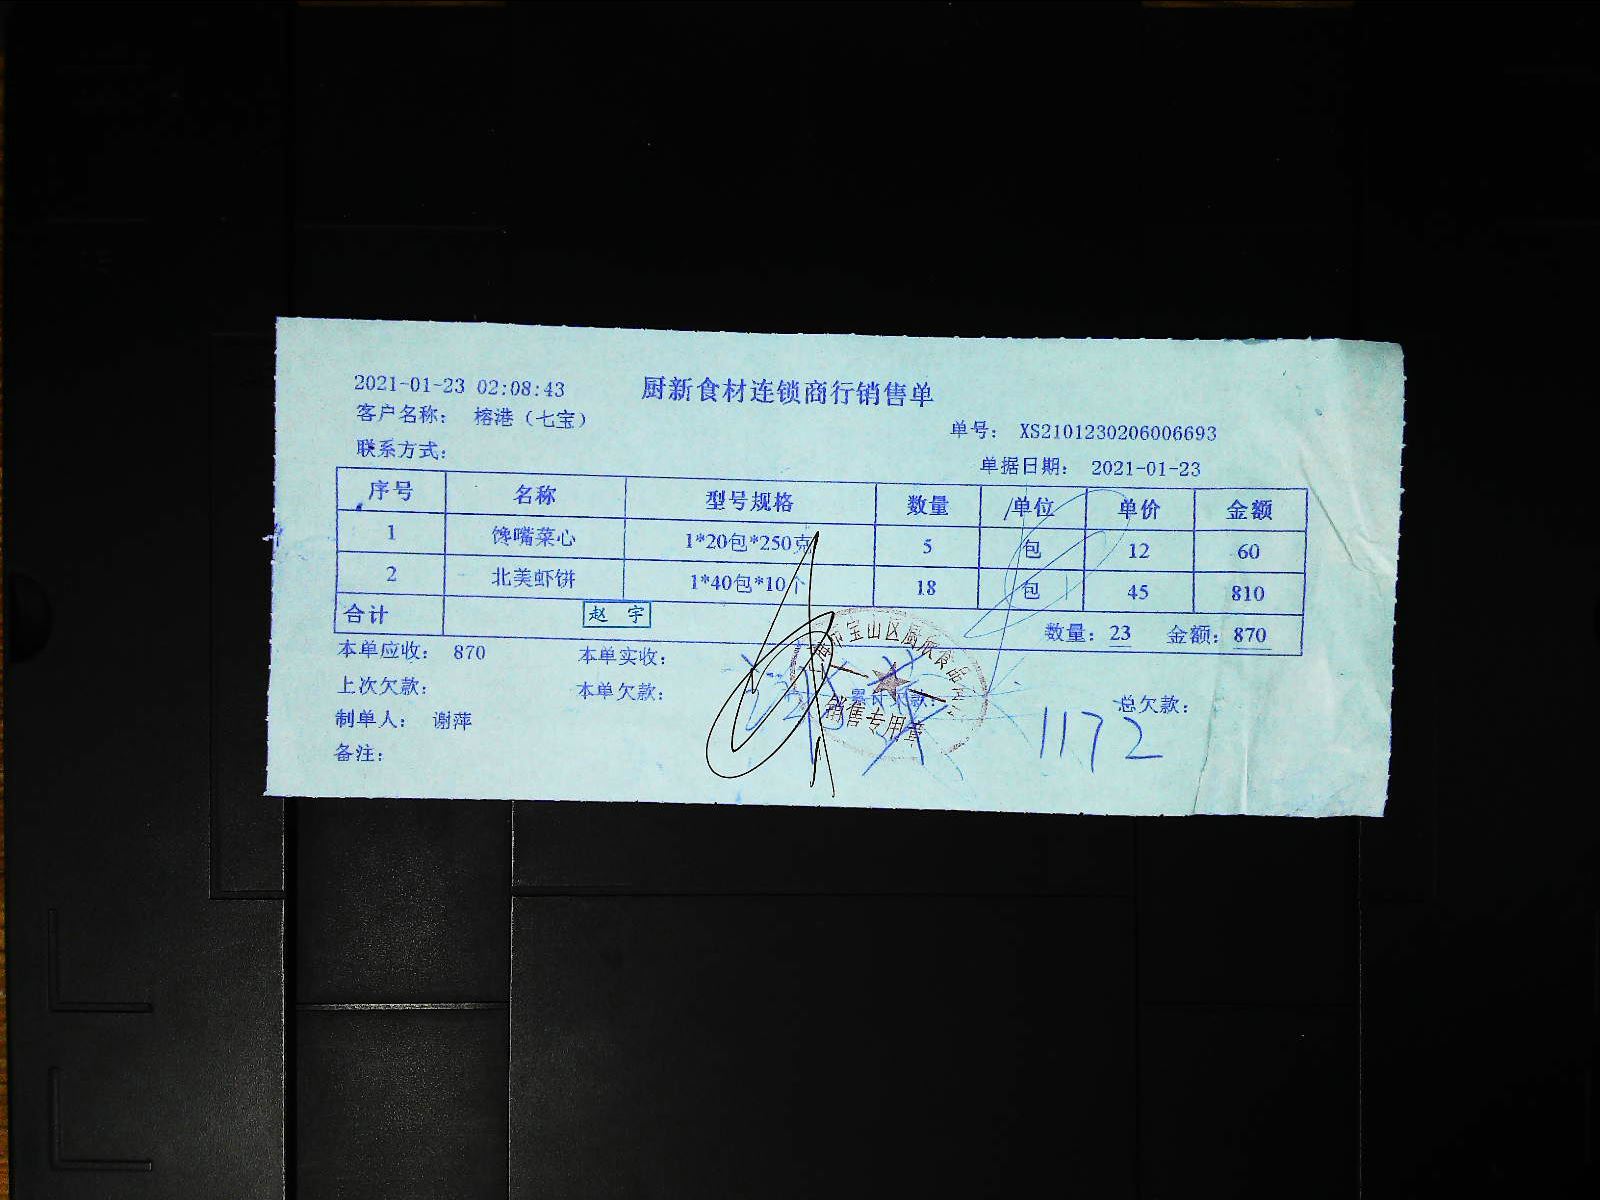 2021-01-23 02:08:43 厨新食材连锁商行销售单
客户名称: 榕港（七宝） 单号: XS2101230206006693
联系方式: 单据日期: 2021-01-23
序号 名称 型号规格 数量 单位 单价 金额
1 馋嘴菜心 1*20包*250克 5 包 12 60
2 北美虾饼 1*40包*10个 18 包 45 810
合计 赵宇 数量: 23 金额: 870
本单应收: 870 本单实收:
上次欠款: 本单欠款: 累计欠款: 总欠款:
制单人: 谢萍
备注:
市宝山区厨欣食品
销售专用章
1172